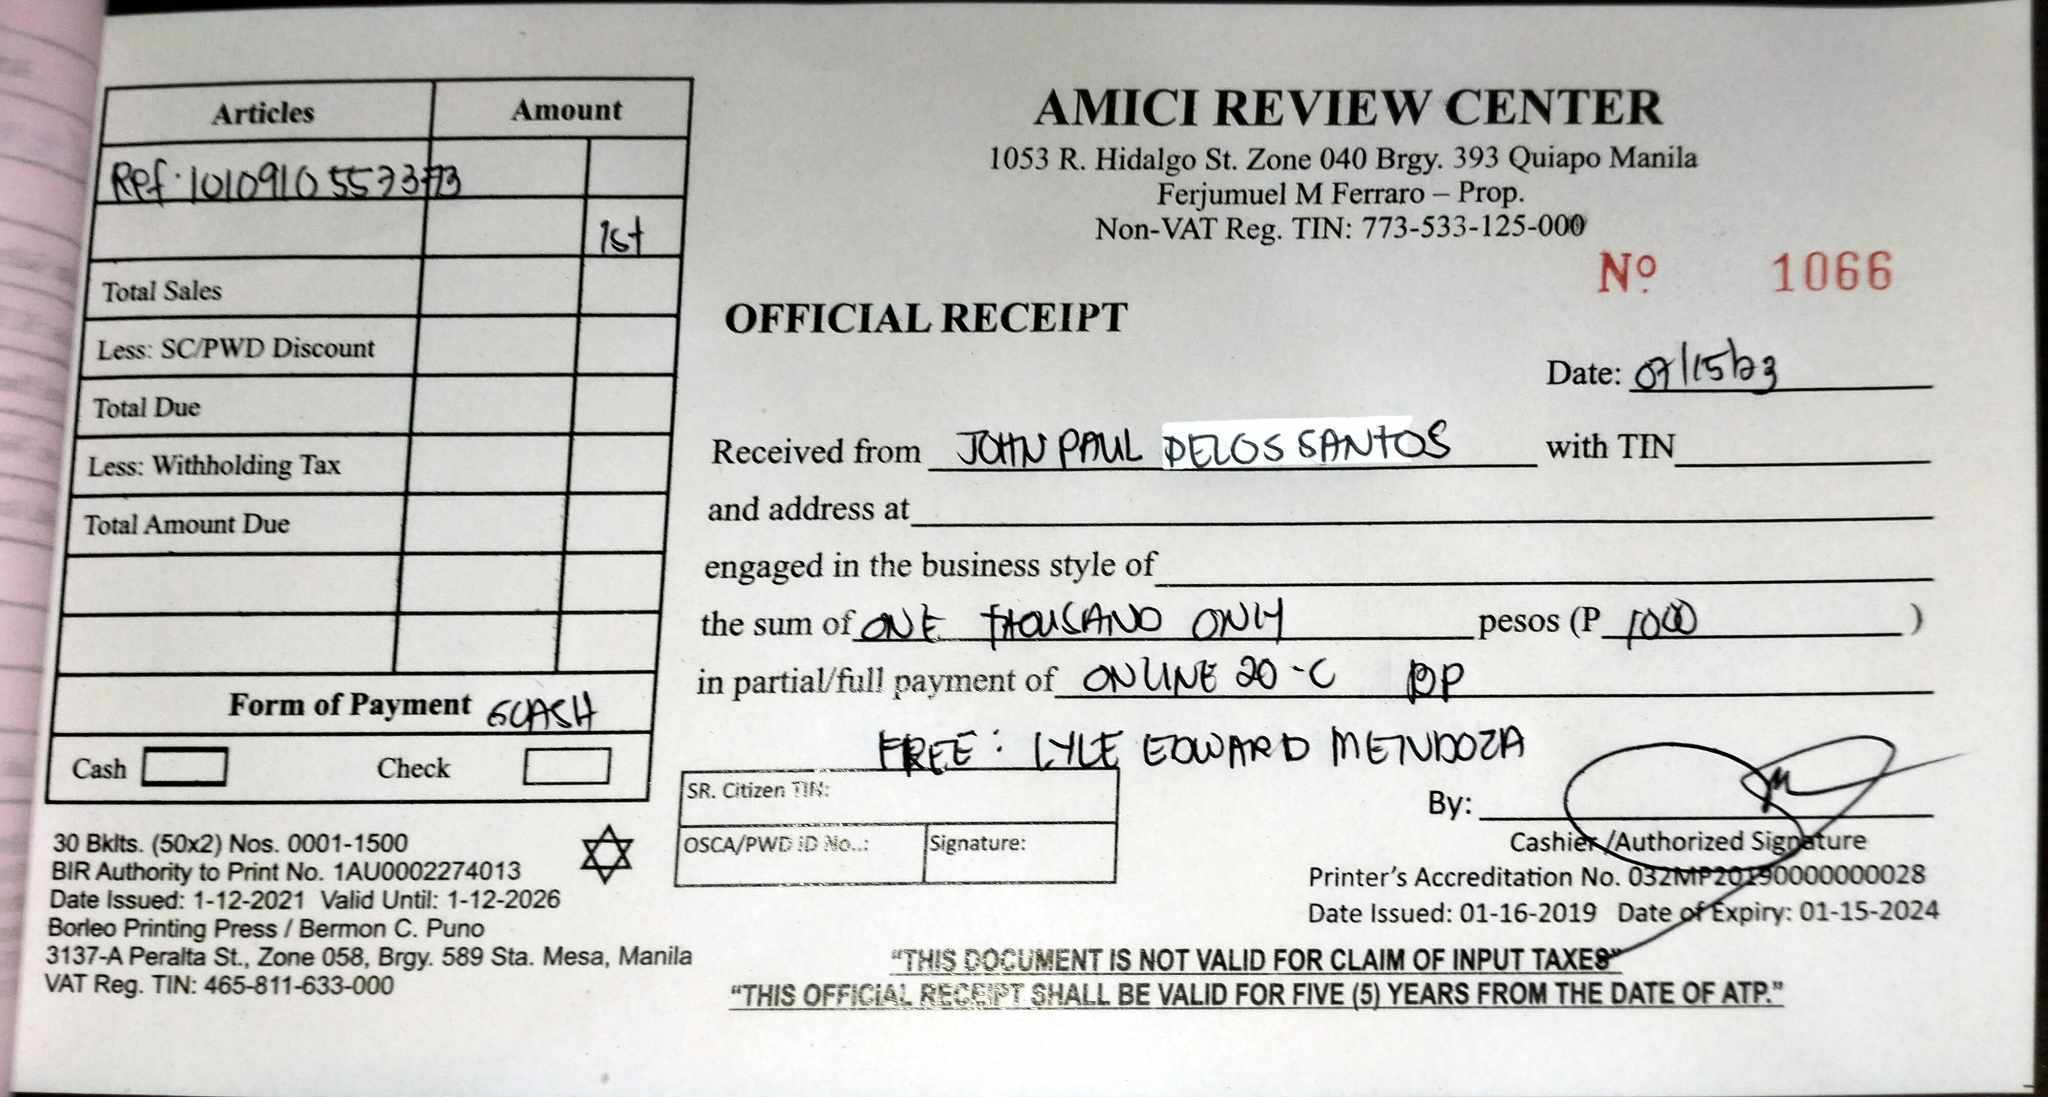 Articles Amount
Ref. 1010910557373
1st
Total Sales
Less: SC/PWD Discount
Total Due
Less: Withholding Tax
Total Amount Due
Form of Payment GCASH
Cash Check
30 Bklts. (50x2) Nos. 0001-1500
BIR Authority to Print No. 1AU0002274013
Date Issued: 1-12-2021 Valid Until: 1-12-2026
Borleo Printing Press / Bermon C. Puno
3137-A Peralta St., Zone 058, Brgy. 589 Sta. Mesa, Manila
VAT Reg. TIN: 465-811-633-000
AMICI REVIEW CENTER
1053 R. Hidalgo St. Zone 040 Brgy. 393 Quiapo Manila
Ferjumuel M Ferraro – Prop.
Non-VAT Reg. TIN: 773-533-125-000
Nº 1066
OFFICIAL RECEIPT
Date: 07/15/23
Received from JOHN PAUL DELOS SANTOS with TIN
and address at
engaged in the business style of
the sum of ONE THOUSAND ONLY pesos (P 1000 )
in partial/full payment of ONLINE 20-C DP
FREE: LYLE EDWARD MENDOZA
SR. Citizen TIN:
OSCA/PWD ID No..: Signature:
By:
Cashier /Authorized Signature
Printer's Accreditation No. 032MP20190000000028
Date Issued: 01-16-2019 Date of Expiry: 01-15-2024
"THIS DOCUMENT IS NOT VALID FOR CLAIM OF INPUT TAXES"
"THIS OFFICIAL RECEIPT SHALL BE VALID FOR FIVE (5) YEARS FROM THE DATE OF ATP."